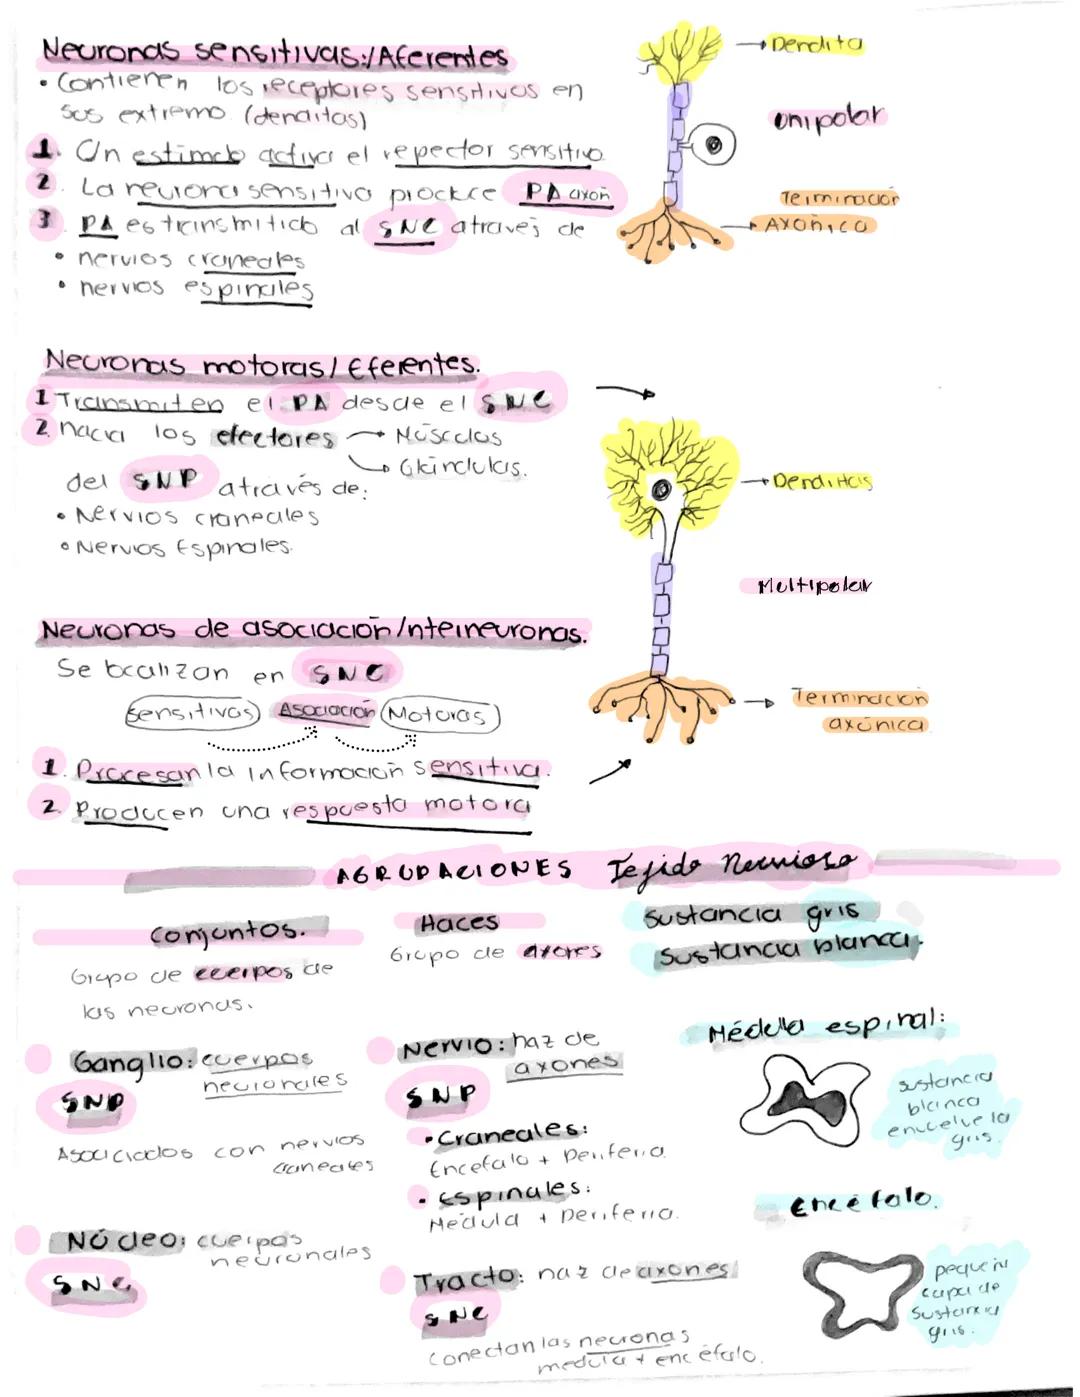 Neuronas sensitivas:/Aferentes
• Contienen los receptores sensitivos en
sus extremo (dendítas)
1. Un estimulo activa el repector sensitivo.
2. La neurona sensitiva produce PA axón
3. PA es transmitido al SNC através de
• nervios craneales
• nervios espinales
Dendita
Unipolar
Terminación
Axónica
Neuronas motoras/Eferentes.
1 Transmiten el PA desde el SNC
2. hacia los efectores → Músculos
→ Glándulas.
del SNP através de:
• Nervios craneales
• Nervios Espinales.
Denditas
Multipolar
Terminación
axónica
Neuronas de asociación/Interneuronas.
Se localizan en SNC
Sensitivas Asociación Motoras
1. Procesan la información sensitiva.
2. Producen una respuesta motora
AGRUPACIONES Tejido Nervioso
Conjuntos.
Grupo de cuerpos de
las neuronas.
Ganglio: cuerpos
neuronales
SNP
Asociados con nervios
craneales
Núcleo: cuerpos
neuronales
SNC
Haces
Grupo de axones
Nervio: haz de
axones
SNP
• Craneales:
Encéfalo + Periferia.
• Espinales:
Médula + Periferia.
Tracto: haz de axones
SNC
Conectan las neuronas
medula + encéfalo.
Sustancia gris
Sustancia blanca.
Médula espinal:
sustancia
blanca
envuelve la
gris.
Encéfalo.
pequeña
capa de
sustancia
gris.